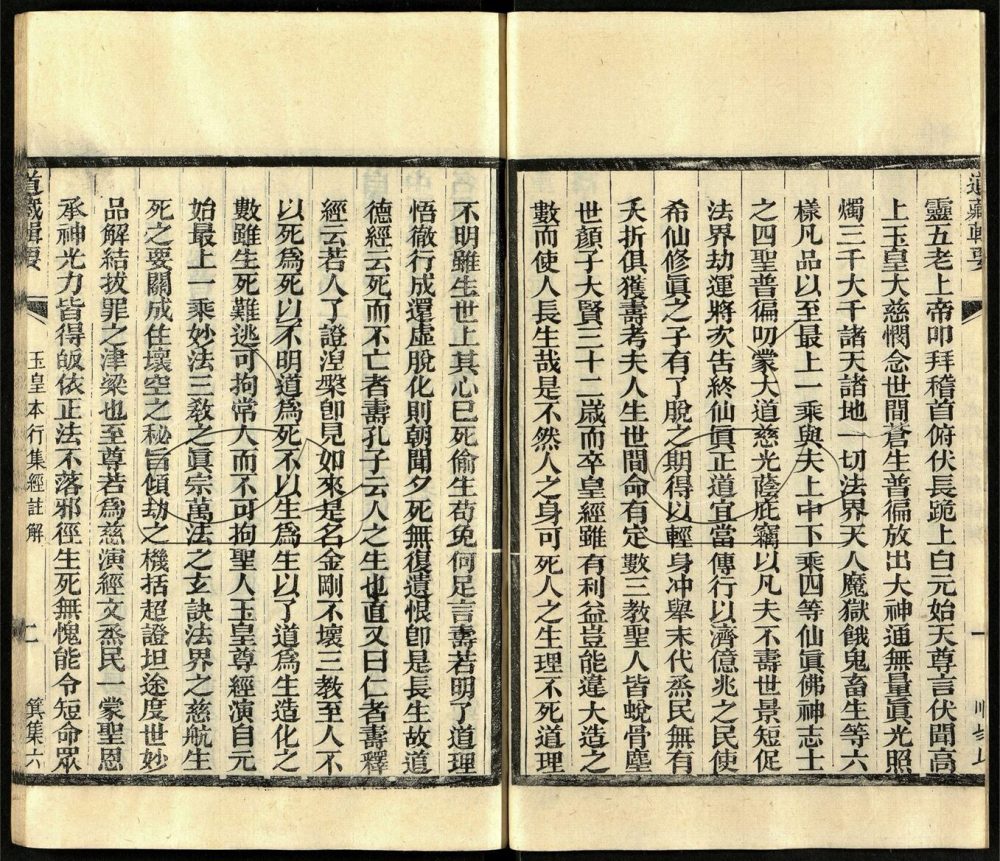 道藏輯要
靈五老上帝叩拜稽首俯伏長跪上白元始天尊言伏聞高
上玉皇大慈憫念世間蒼生普徧放出大神通無量眞光照
燭三千大千諸天諸地一切法界天人魔獄餓鬼畜生等六
樣凡品以至最上一乘與夫上中下乘四等仙眞佛神志士
之四聖普徧叨蒙大道慈光蔭庇竊以凡夫不壽世景短促
法界劫運將次告終仙眞正道宜當傳行以濟億兆之民使
希仙修眞之子有了脫之期得以輕身冲舉末代烝民無有
夭折俱獲壽考夫人生世間命有定數三教聖人皆蛻骨塵
世顏子大賢三十二歲而卒皇經雖有利益豈能違大造之
數而使人長生哉是不然人之身可死人之生理不死道理
不明雖生世上其心已死偷生苟免何足言壽若明了道理
悟徹行成還虛脫化則朝聞夕死無復遺恨卽是長生故道
德經云死而不亡者壽孔子云人之生也直又曰仁者壽釋
經云若人了證湼槃卽見如來是名金剛不壞三教至人不
以死爲死以不明道爲死不以生爲生以了道爲生造化之
數雖生死難逃可拘常人而不可拘聖人玉皇尊經演自元
始最上一乘妙法三敎之眞宗萬法之玄訣法界之慈航生
死之要關成住壞空之秘旨傾劫之機括超證坦途度世妙
品解結拔罪之津梁也至尊若爲慈演經文烝民一蒙聖恩
承神光力皆得皈依正法不落邪徑生死無愧能令短命眾
道藏輯要
玉皇本行集經註解
二
箕集六